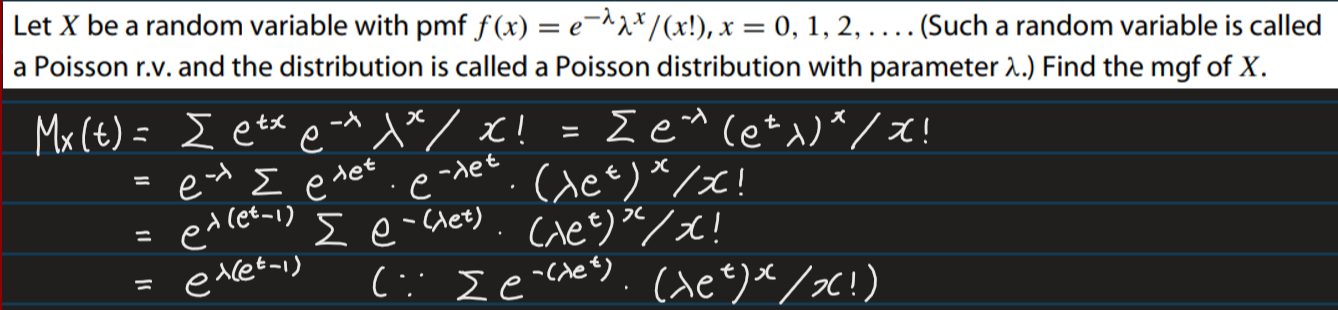 Let X be a random variable with pmf f(x) = e^{−λ}λ^x/(x!), x = 0, 1, 2, .... (Such a random variable is called
a Poisson r.v. and the distribution is called a Poisson distribution with parameter λ.) Find the mgf of X.
Mx(t) = Σ e^{tx} e^{-λ} λ^x / x! = Σ e^{-λ} (e^t λ)^x / x!
= e^{-λ} Σ e^{λe^t} · e^{-λe^t} · (λe^t)^x / x!
= e^{λ(e^t-1)} Σ e^{-(λe^t)} · (λe^t)^x / x!
= e^{λ(e^t-1)} (∵ Σ e^{-(λe^t)} · (λe^t)^x / x!)